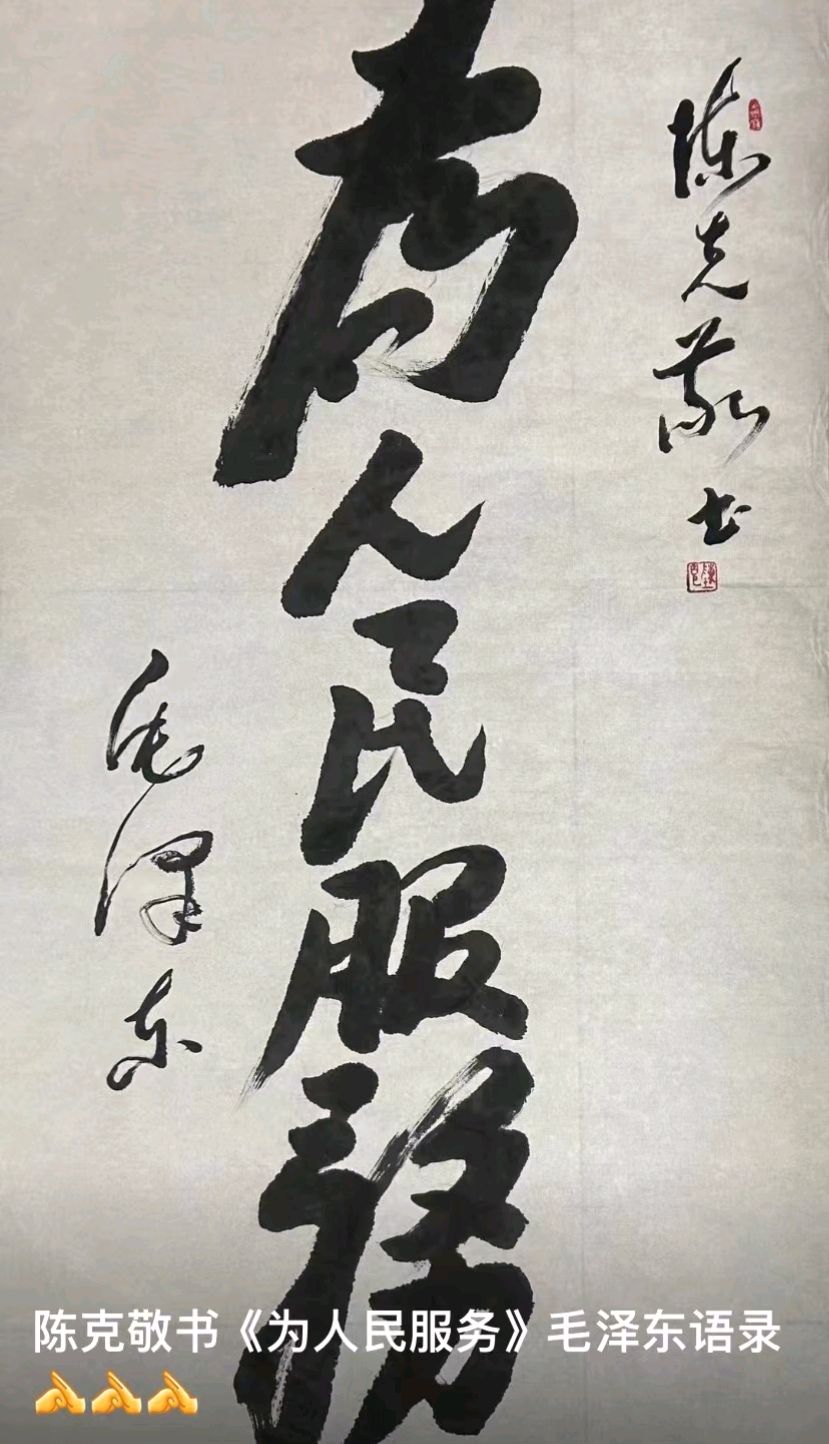 陳克敬书
為人民服務
毛澤东
陈克敬书《为人民服务》毛泽东语录